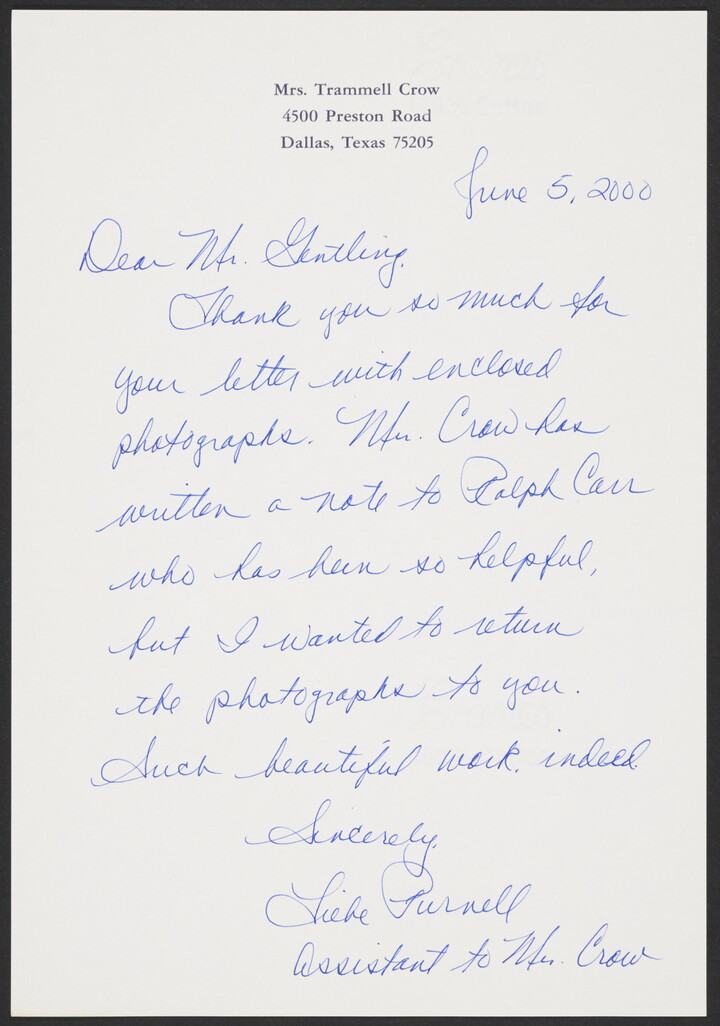 Mrs. Trammell Crow
4500 Preston Road
Dallas, Texas 75205
June 5, 2000
Dear Mr. Gentling,
Thank you so much for
your letter with enclosed
photographs. Mrs. Crow has
written a note to Ralph Carr
who has been so helpful,
but I wanted to return
the photographs to you.
Such beautiful work, indeed.
Sincerely,
Purnell
Assistant to Mrs. Crow